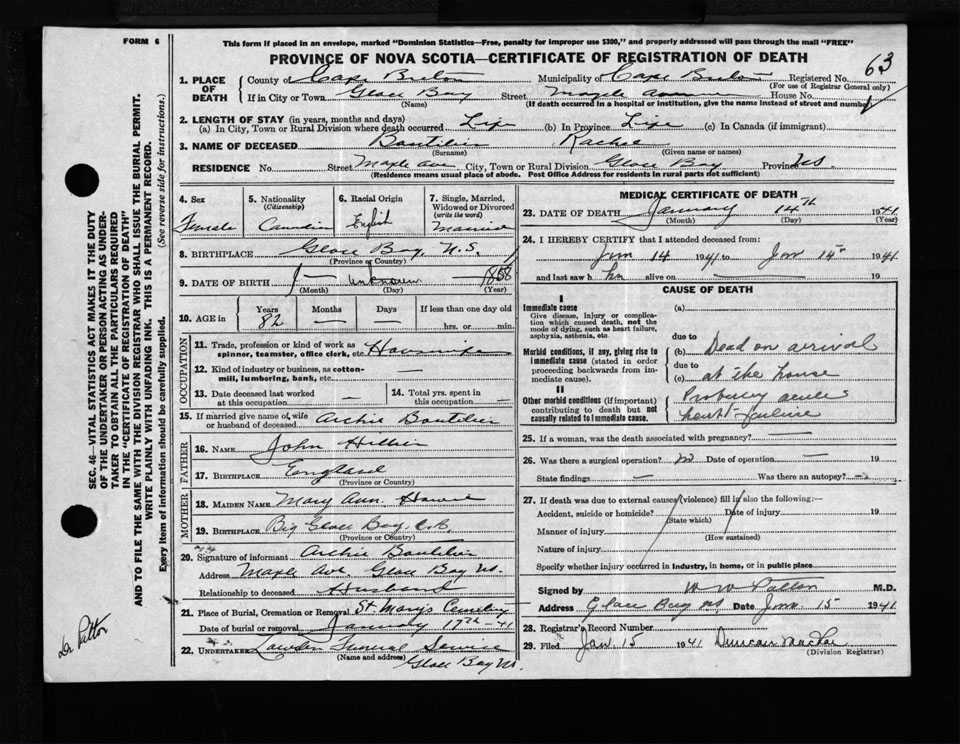 FORM 6
This form if placed in an envelope, marked "Dominion Statistics—Free, penalty for improper use $300," and properly addressed will pass through the mail "FREE"
PROVINCE OF NOVA SCOTIA—CERTIFICATE OF REGISTRATION OF DEATH
63
1. PLACE OF DEATH County of Cape Breton Municipality of Cape Breton Registered No.
(For use of Registrar General only)
If in City or Town Glace Bay Street Maple Ave House No.
(Name) (If death occurred in a hospital or institution, give the name instead of street and number)
2. LENGTH OF STAY (in years, months and days)
(a) In City, Town or Rural Division where death occurred Life (b) In Province Life (c) In Canada (if immigrant)
3. NAME OF DECEASED Boutilier Rachel
(Surname) (Given name or names)
RESIDENCE No Street Maple Ave City, Town or Rural Division Glace Bay Province NS
(Residence means usual place of abode. Post Office Address for residents in rural parts not sufficient)
4. Sex 5. Nationality (Citizenship) 6. Racial Origin 7. Single, Married, Widowed or Divorced (write the word)
Female Canadian English Married
8. BIRTHPLACE Glace Bay, N.S.
(Province or Country)
9. DATE OF BIRTH — unknown — 1858
(Month) (Day) (Year)
10. AGE in Years Months Days If less than one day old
82 — — hrs. or min.
OCCUPATION
11. Trade, profession or kind of work as spinner, teamster, office clerk, etc. Housewife
12. Kind of industry or business, as cotton-mill, lumbering, bank, etc. —
13. Date deceased last worked at this occupation — 14. Total yrs. spent in this occupation —
15. If married give name of wife or husband of deceased Archie Boutilier
FATHER
16. NAME John Hillier
17. BIRTHPLACE England
(Province or Country)
MOTHER
18. MAIDEN NAME Mary Ann
19. BIRTHPLACE Big Glace Bay, C.B.
(Province or Country)
20. Signature of informant Archie Boutilier
Address Maple Ave Glace Bay NS.
Relationship to deceased Husband
21. Place of Burial, Cremation or Removal St Mary's Cemetery
Date of burial or removal January 17th -41
22. UNDERTAKER Funeral Service
(Name and address) Glace Bay NS.
MEDICAL CERTIFICATE OF DEATH
23. DATE OF DEATH January 14th 1941
(Month) (Day) (Year)
24. I HEREBY CERTIFY that I attended deceased from:
Jan 14 1941 to Jan 15 1941
and last saw h alive on — 19
CAUSE OF DEATH
I
Immediate cause
Give disease, injury or complication which caused death, not the mode of dying, such as heart failure, asphyxia, asthenia, etc
(a)
due to
Morbid conditions, if any, giving rise to immediate cause (stated in order proceeding backwards from immediate cause).
(b) Dead on arrival
due to
(c) at the house
II
Other morbid conditions (if important) contributing to death but not causally related to immediate cause.
Probably acute
heart failure
25. If a woman, was the death associated with pregnancy? —
26. Was there a surgical operation? no Date of operation — 19
State findings — Was there an autopsy? —
27. If death was due to external causes (violence) fill in also the following:—
Accident, suicide or homicide? Date of injury 19
(State which)
Manner of injury
(How sustained)
Nature of injury
Specify whether injury occurred in industry, in home, or in public place
Signed by W W Patton M.D.
Address Glace Bay NS Date Jan. 15 1941
28. Registrar's Record Number
29. Filed Jan 15 1941 Duncan
(Division Registrar)
SEC. 46—VITAL STATISTICS ACT MAKES IT THE DUTY
OF THE UNDERTAKER OR PERSON ACTING AS UNDER-
TAKER TO OBTAIN ALL THE PARTICULARS REQUIRED
IN THE "CERTIFICATE OF REGISTRATION OF DEATH"
AND TO FILE THE SAME WITH THE DIVISION REGISTRAR WHO SHALL ISSUE THE BURIAL PERMIT.
WRITE PLAINLY WITH UNFADING INK. THIS IS A PERMANENT RECORD.
Every item of information should be carefully supplied. (See reverse side for instructions.)
Dr Patton